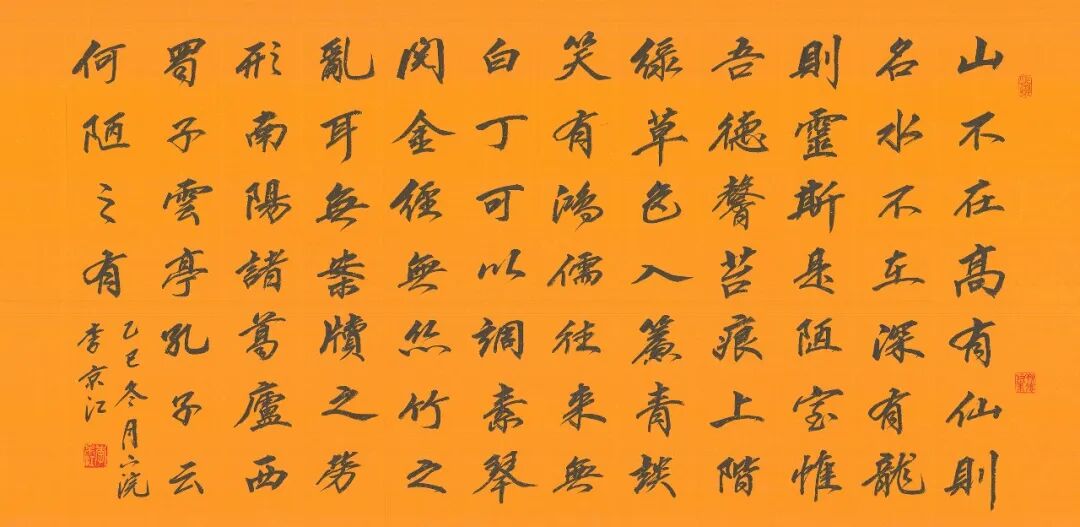 山不在高有仙則
名水不在深有龍
則靈斯是陋室惟
吾德馨苔痕上階
綠草色入簾青談
笑有鴻儒往來無
白丁可以調素琴
閱金經無絲竹之
亂耳無案牘之勞
形南陽諸葛廬西
蜀子雲亭孔子云
何陋之有
乙巳冬月浣
李京江